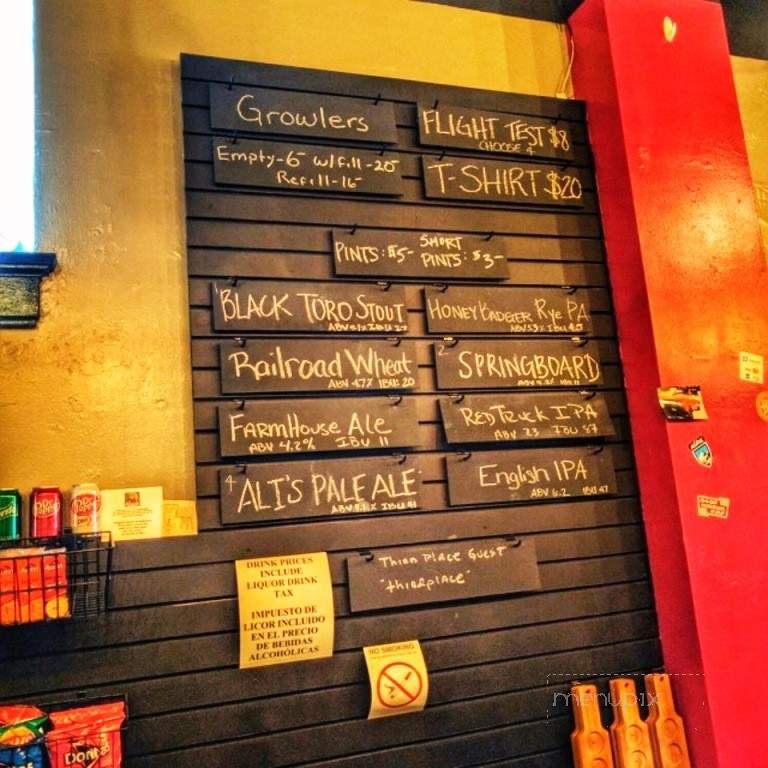 Growlers
Empty-6- w/fill-20-
Refill-16-
FLIGHT TEST $8
CHOOSE 4
T-SHIRT $20
PINTS: $5- SHORT PINTS: $3-
BLACK TORO STOUT
ABV IBU
HONEY BADGER RYE PA
ABV IBU
Railroad Wheat
ABV 4.7% IBU 20
SPRINGBOARD
FARMHOUSE ALE
ABV 4.2% IBU 11
RED TRUCK IPA
ABV IBU 57
4 ALI'S PALE ALE
ABV IBU
English IPA
ABV 6.2 IBU 47
Place Guest
DRINK PRICES
INCLUDE
LIQUOR DRINK
TAX
IMPUESTO DE
LICOR INCLUIDO
EN EL PRECIO
DE BEBIDAS
ALCOHÓLICAS
NO SMOKING
Doritos
menupix